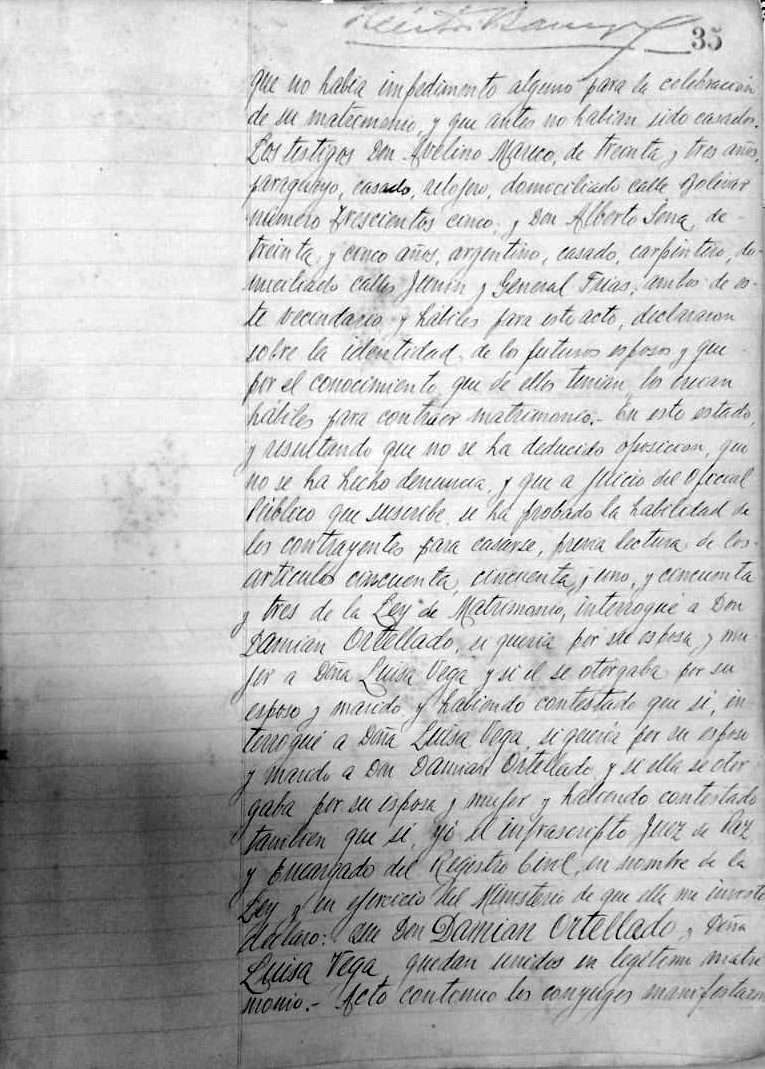 35
que no habia impedimento alguno para la celebración
de su matrimonio, y que antes no habian sido casados.
Los testigos Don Avelino Mareco, de treinta y tres años,
paraguayo, casado, relojero, domiciliado calle Bolivar
número trescientos cinco; y Don Alberto Sena, de
treinta y cinco años, argentino, casado, carpintero, do-
miciliado calles Junin y General Frias, ambos de es-
te vecindario y hábiles para este acto, declararon
sobre la identidad de los futuros esposos y que
por el conocimiento que de ellos tenian, los creian
hábiles para contraer matrimonio.- En este estado,
y resultando que no se ha deducido oposicion, que
no se ha hecho denuncia, y que a juicio del Oficial
Público que suscribe, se ha probado la habilidad de
los contrayentes para casarse, previa lectura de los
articulos cincuenta, cincuenta y uno, y cincuenta
y tres de la Ley de Matrimonio, interrogué a Don
Damian Ortellado, si queria por su esposa y mu-
jer a Doña Luisa Vega y si él se otorgaba por su
esposo y marido, y habiendo contestado que si, in-
terrogué a Doña Luisa Vega, si queria por su esposo
y marido a Don Damian Ortellado y si ella se otor
gaba por su esposa y mujer y habiendo contestado
tambien que si, yó el infrascripto Juez de Paz
y Encargado del Registro Civil, en nombre de la
Ley y en ejercicio del Ministerio de que ella me inviste
declaro: que Don Damian Ortellado y Doña
Luisa Vega quedan unidos en legitimo matri
monio.- Acto continuo los conyuges manifestaron